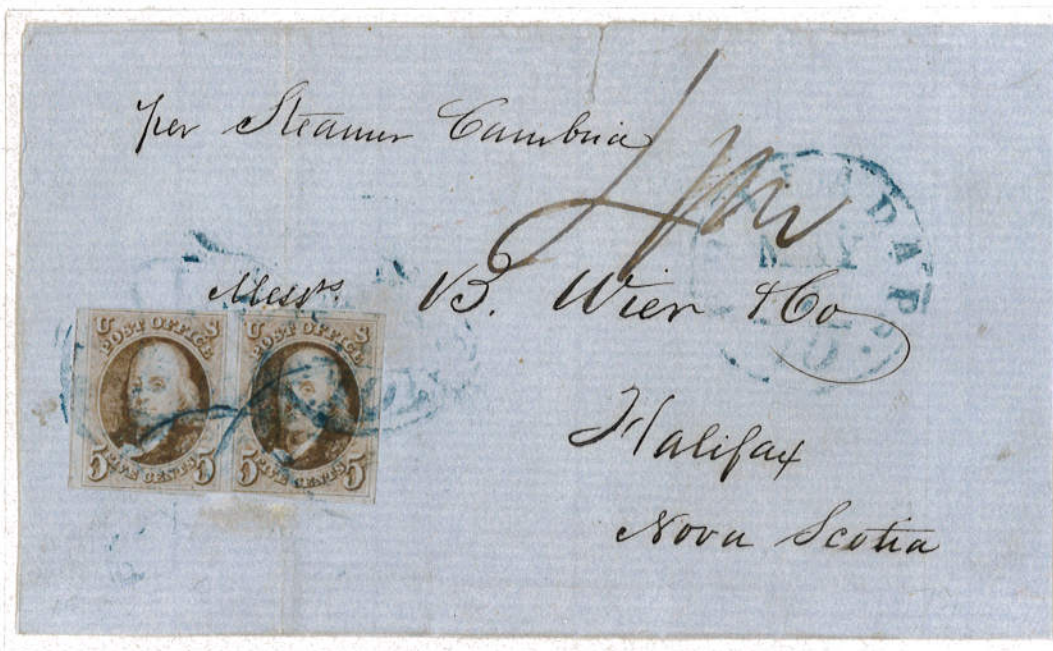 per Steamer Cambria
Messrs B. Wier & Co
Halifax
Nova Scotia
U S
POST OFFICE
5 FIVE CENTS 5
U S
POST OFFICE
5 FIVE CENTS 5
MAY
10